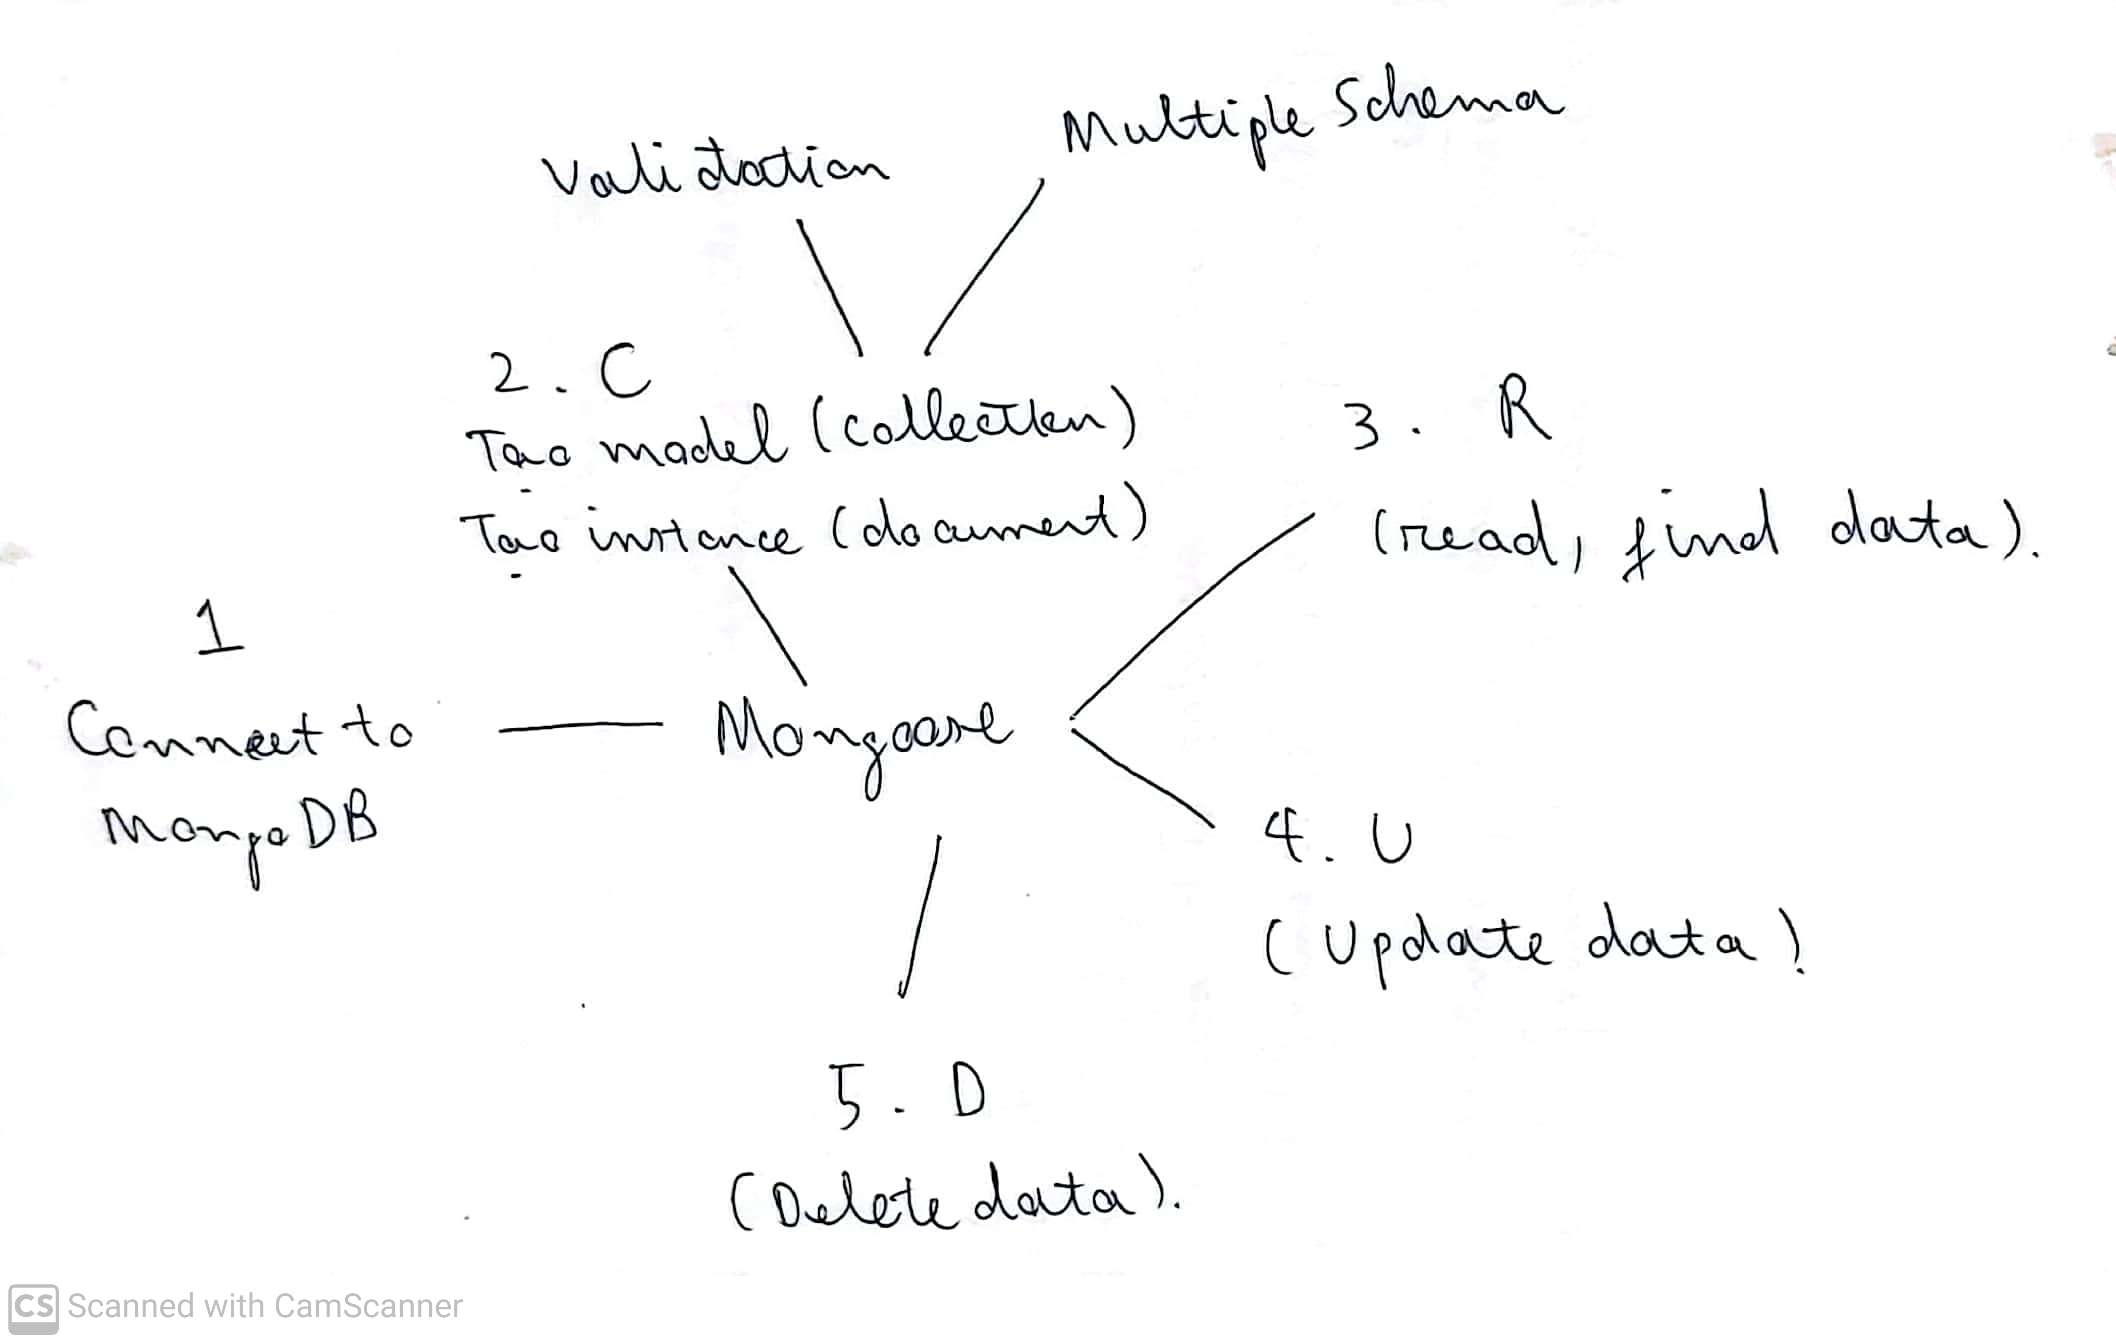 Validation
Multiple Schema
2. C
Tạo model (collection)
Tạo instance (document)
3. R
(read, find data).
1
Connect to
MongoDB
Mongoose
4. U
(Update data)
5. D
(Delete data).
CS Scanned with CamScanner